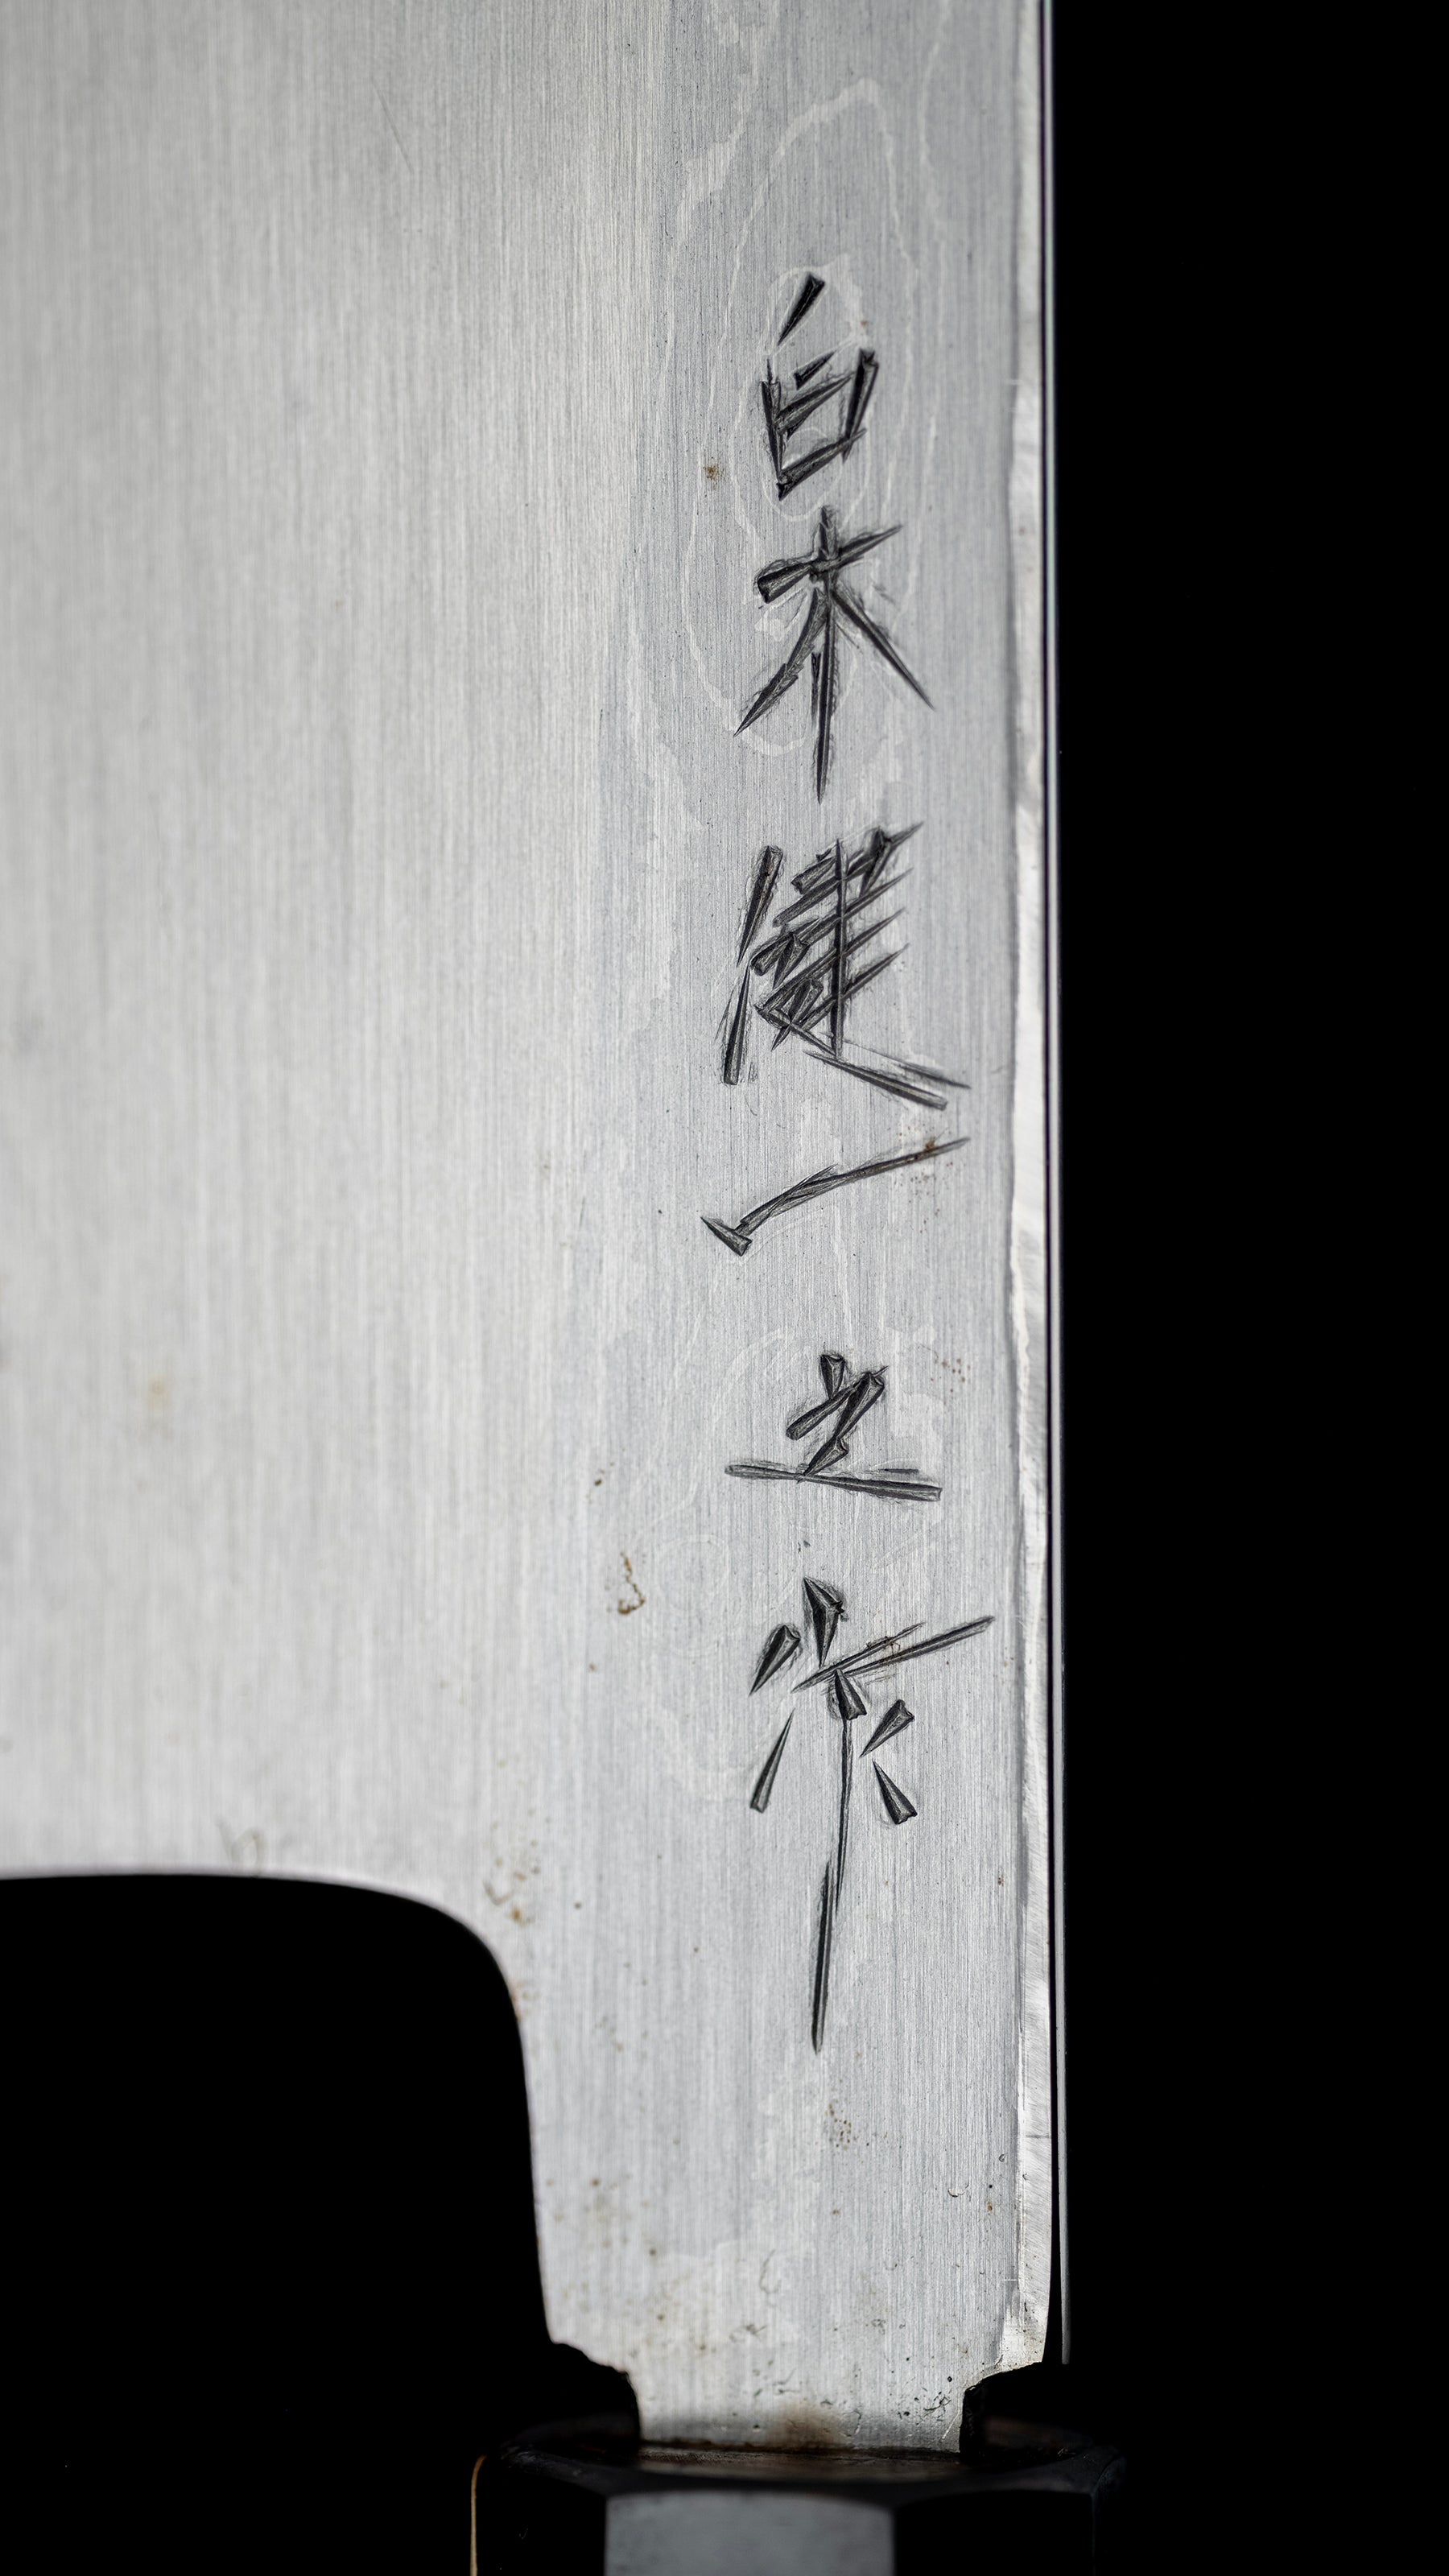 白木健一之作